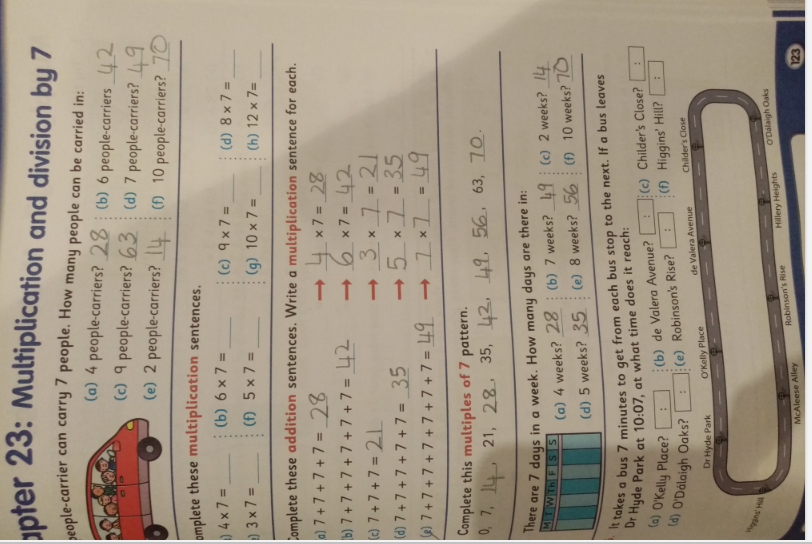 apter 23: Multiplication and division by 7
people-carrier can carry 7 people. How many people can be carried in:
(a) 4 people-carriers? 28 (b) 6 people-carriers 42
(c) 9 people-carriers? 63 (d) 7 people-carriers? 49
(e) 2 people-carriers? 14 (f) 10 people-carriers? 70
omplete these multiplication sentences.
) 4 × 7 = (b) 6 × 7 = (c) 9 × 7 = (d) 8 × 7 =
) 3 × 7 = (f) 5 × 7 = (g) 10 × 7 = (h) 12 × 7=
omplete these addition sentences. Write a multiplication sentence for each.
a) 7 + 7 + 7 + 7 = 28 → 4 × 7 = 28
b) 7 + 7 + 7 + 7 + 7 + 7 = 42 → 6 × 7 = 42
(c) 7 + 7 + 7 = 21 → 3 × 7 = 21
(d) 7 + 7 + 7 + 7 + 7 = 35 → 5 × 7 = 35
(e) 7 + 7 + 7 + 7 + 7 + 7 + 7 = 49 → 7 × 7 = 49
Complete this multiples of 7 pattern.
0, 7, 14, 21, 28, 35, 42, 49, 56, 63, 70.
There are 7 days in a week. How many days are there in:
M T W Th F S S
(a) 4 weeks? 28 (b) 7 weeks? 49 (c) 2 weeks? 14
(d) 5 weeks? 35 (e) 8 weeks? 56 (f) 10 weeks? 70
It takes a bus 7 minutes to get from each bus stop to the next. If a bus leaves
Dr Hyde Park at 10:07, at what time does it reach:
(a) O'Kelly Place? : (b) de Valera Avenue? : (c) Childer's Close? :
(d) O'Dálaigh Oaks? : (e) Robinson's Rise? : (f) Higgins' Hill? :
Dr Hyde Park
O'Kelly Place
de Valera Avenue
Childer's Close
Higgins' Hill
McAleese Alley
Robinson's Rise
Hillery Heights
O'Dálaigh Oaks
123